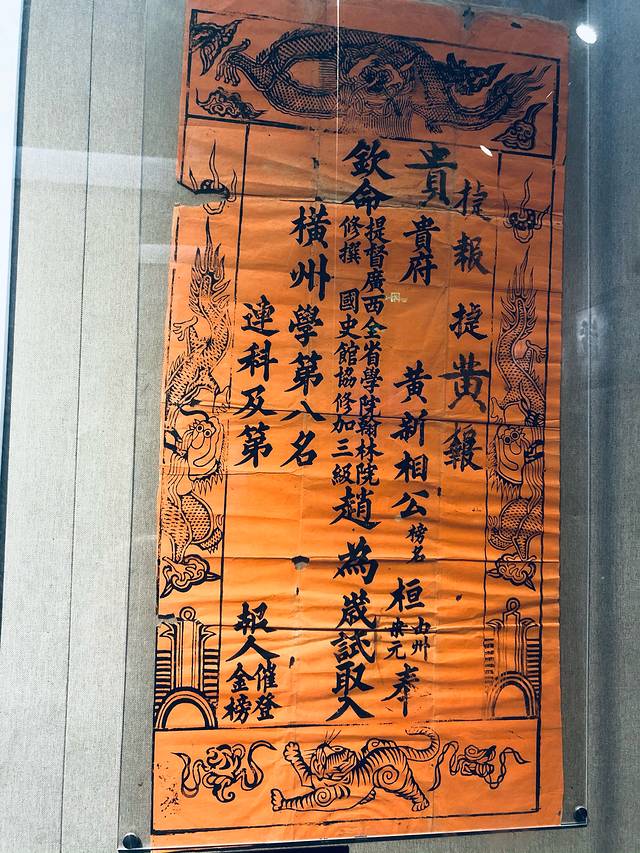 捷報捷黃報
貴貴府黃新相公榜名桓由州案元奉
欽命提督廣西全省學院翰林院修撰國史館協修加三級趙為歲試取入
橫州學第八名
連科及第
報人催登金榜